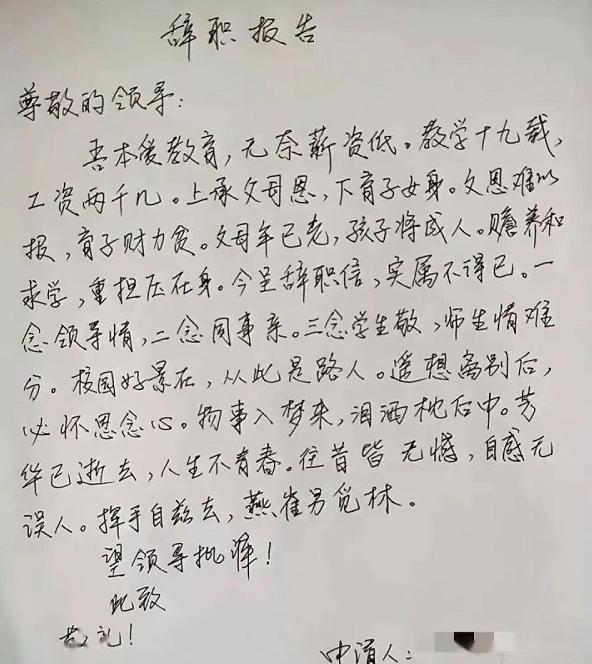 辞职报告
尊敬的领导:
吾本爱教育,无奈薪资低。教学十九载,
工资两千几。上承父母恩,下育子女身。父恩难以
报,育子财力贫。父母年已老,孩子将成人。赡养和
求学,重担压在身。今呈辞职信,实属不得已。一
念领导情,二念同事亲。三念学生敬,师生情难
分。校园好景在,从此是路人。遥想离别后,
必怀思念心。物事入梦来,泪洒枕后中。芳
华已逝去,人生不青春。往昔皆无憾,自感无
误人。挥手自兹去,燕雀另觅林。
望领导批准!
此致
敬礼!
申请人: